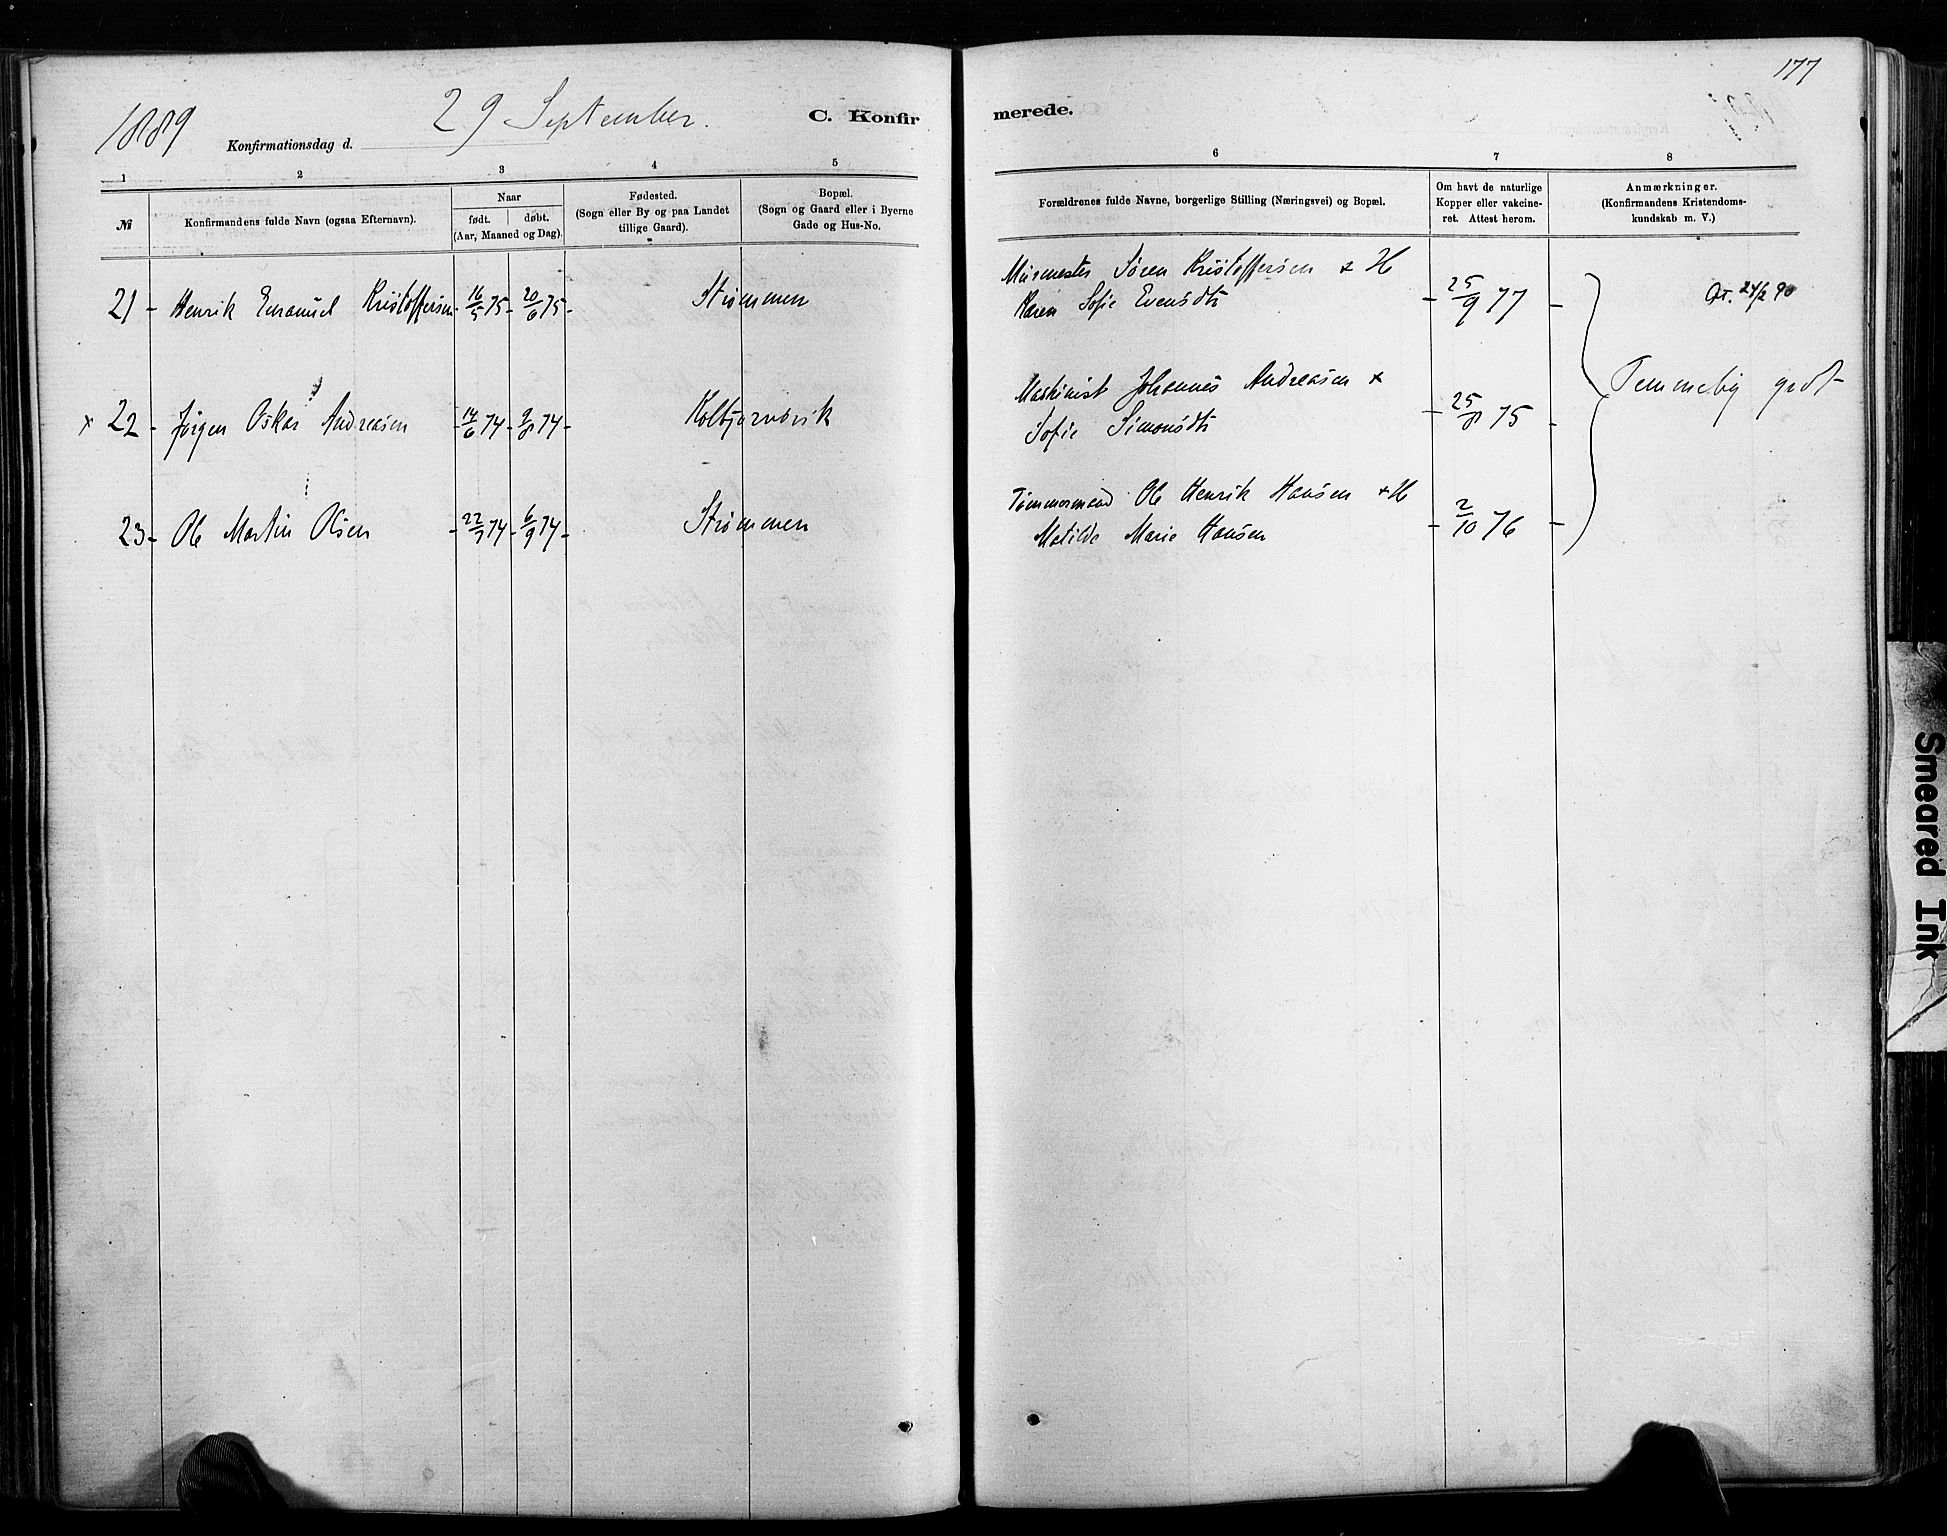 177
1889
29 September.
C. Konfir
merede.
Konfirmationsdag d.
1 2 3 4 5 6 7 8
№
Konfirmandens fulde Navn (ogsaa Efternavn).
Naar
født. døbt.
(Aar, Maaned og Dag).
Fødested.
(Sogn eller By og paa Landet
tillige Gaard).
Bopæl.
(Sogn og Gaard eller i Byerne
Gade og Hus-No.
Forældrenes fulde Navne, borgerlige Stilling (Næringsvei) og Bopæl.
Om havt de naturlige
Kopper eller vakcine-
ret. Attest herom.
Anmærkninger.
(Konfirmandens Kristendoms-
kundskab m. V.)
21 - Henrik Emanuel Kristoffersen - 16/5 75 - 20/6 75 - Strømmen
Murmester Søren Kristoffersen & H
Karen Sofie Evensdt
- 25/9 77 -
24/2 90
x 22 - Jørgen Oskar Andreasen - 14/6 74 - 9/8 74 - Kolbjørnsvik
Maskinist Johannes Andreasen &
Sofie Simonsdt
- 25/8 75 -
Temmelig godt
23 - Ole Martin Olsen - 22/7 74 - 6/9 74 - Strømmen
Tømmermand Ole Henrik Hansen & H
Matilde Marie Hansen
- 2/10 76 -
Smeared Ink